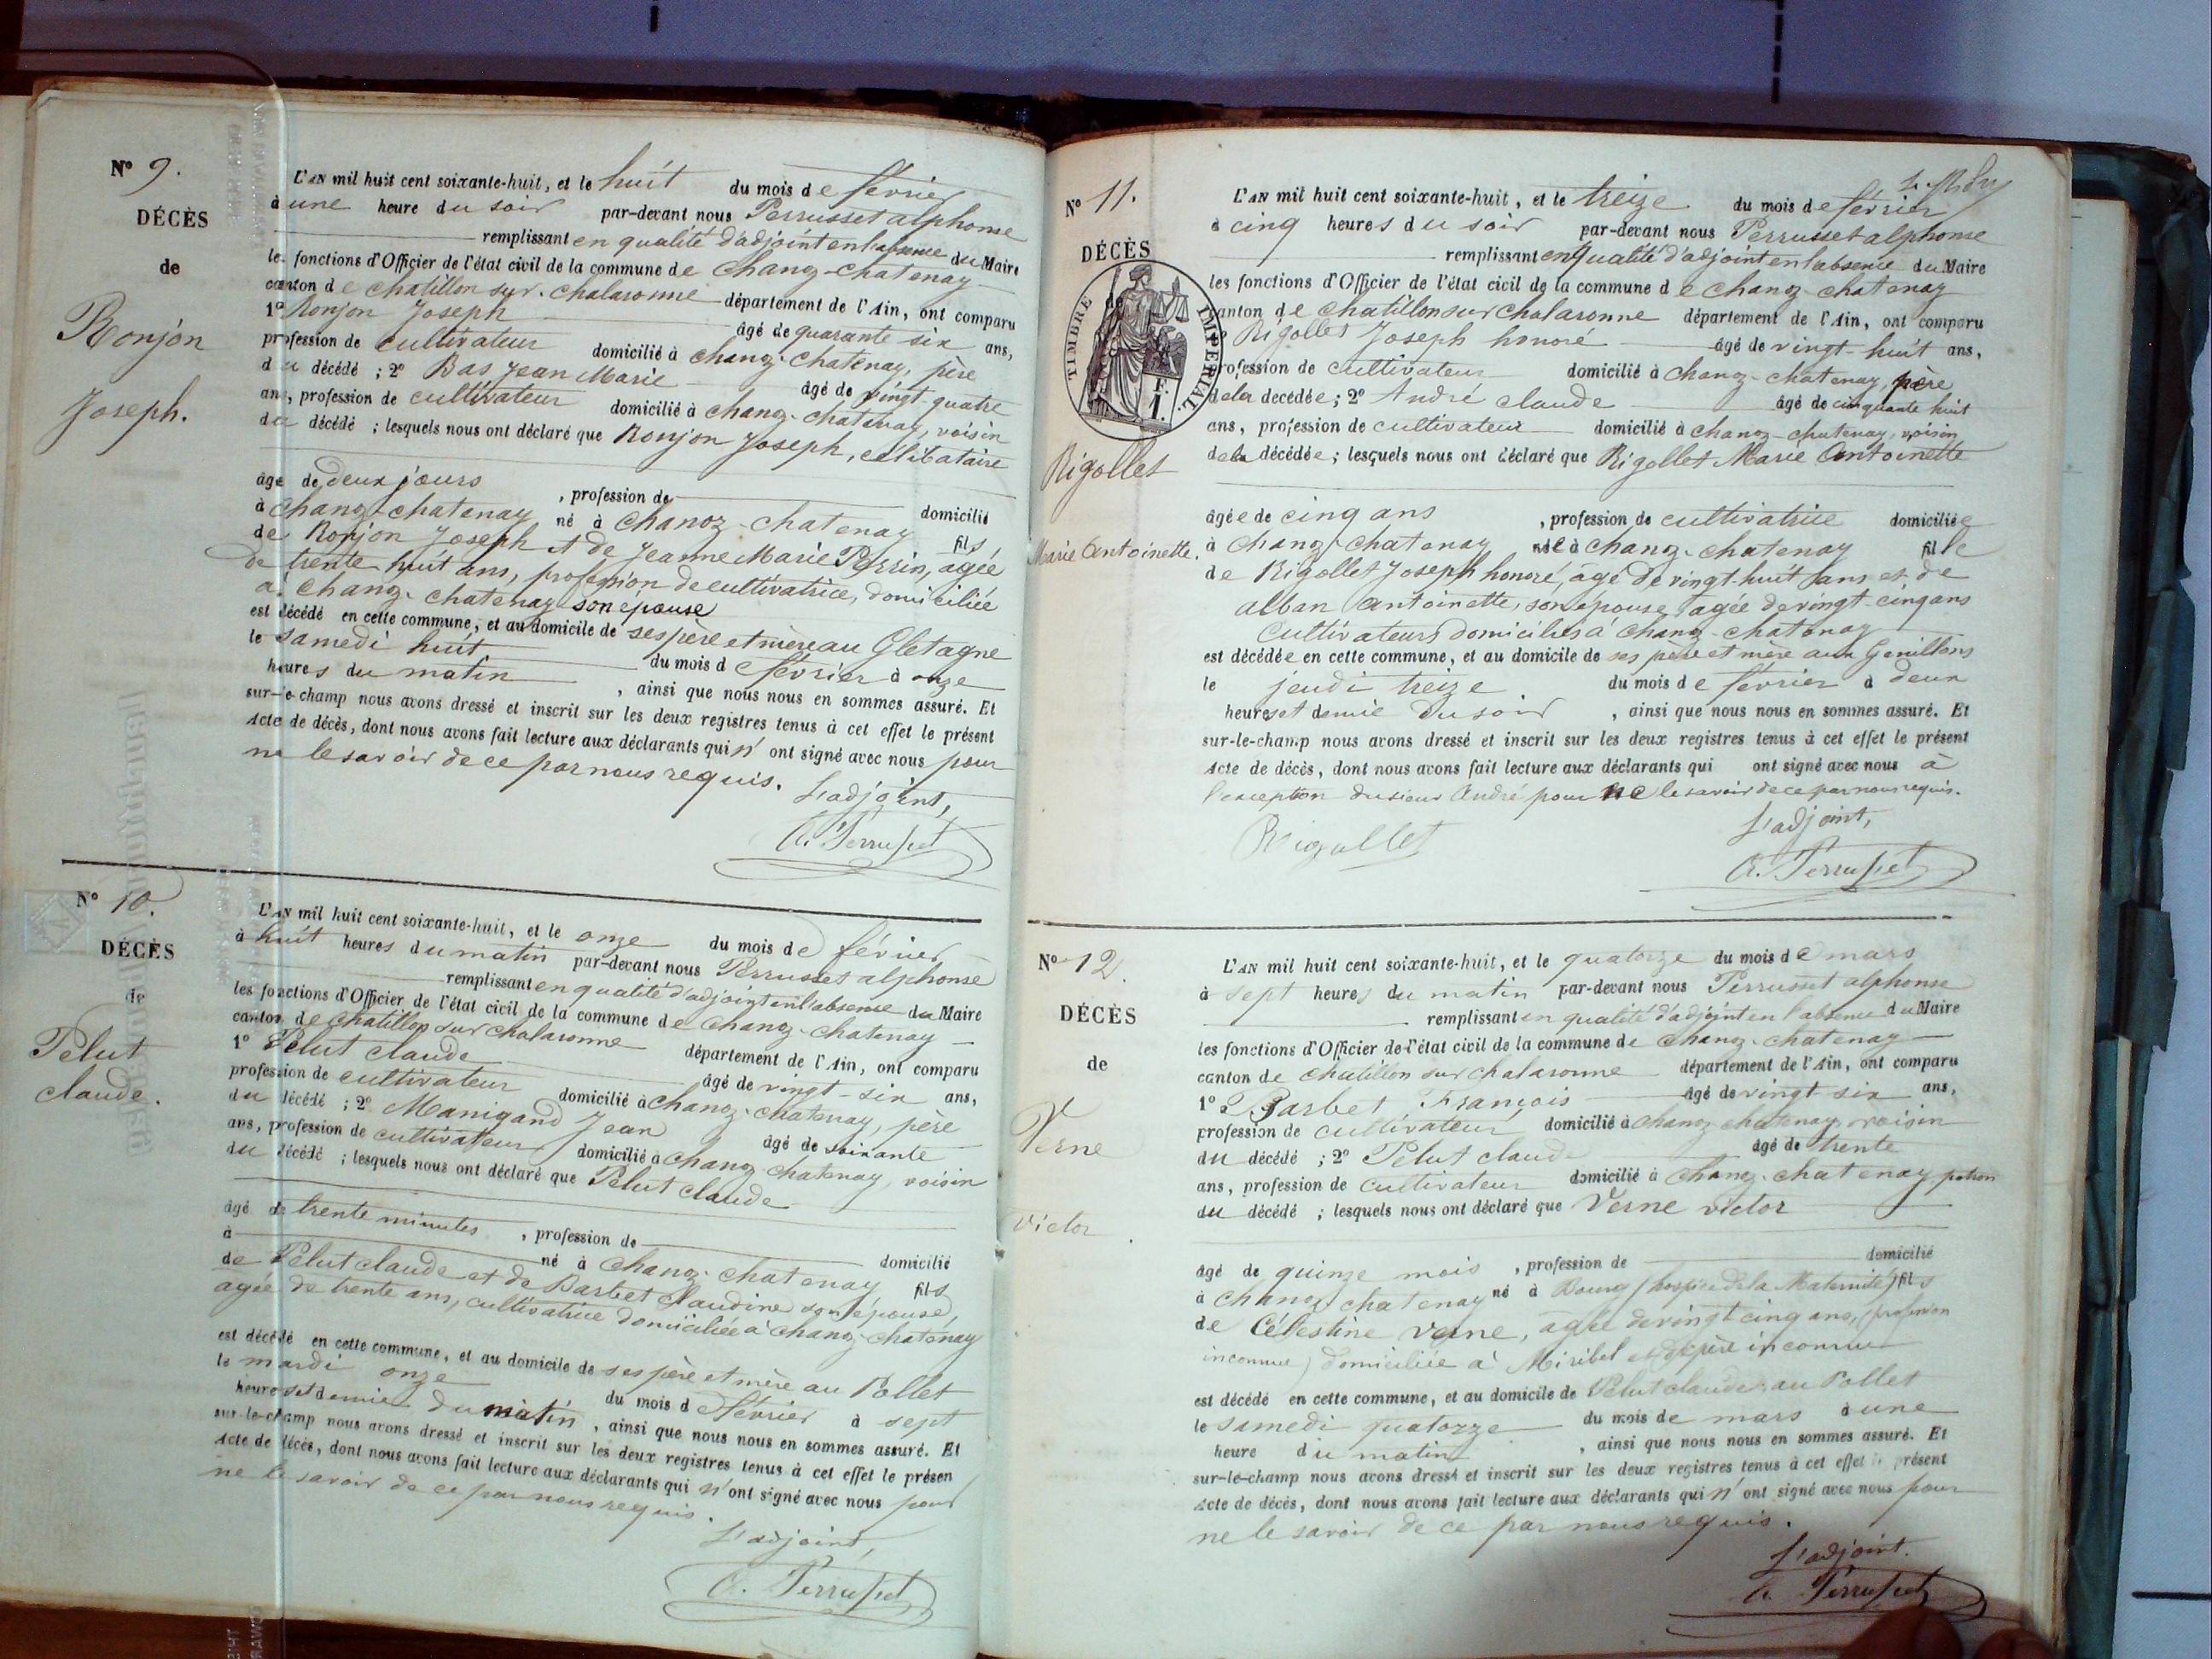 N° 9.
DÉCÈS
de
Ronjon
Joseph.
L'AN mil huit cent soixante-huit, et le huit du mois de février
à une heure du soir par-devant nous Perrusset alphonse
remplissant en qualité d'adjoint en l'absence du Maire
les fonctions d'Officier de l'état civil de la commune de Chanoz-chatenay
canton de chatillon sur chalaronne département de l'Ain, ont comparu
1° Ronjon Joseph âgé de quarante six ans,
profession de cultivateur domicilié à chanoz-chatenay, père
du décédé ; 2° Bas Jean Marie âgé de vingt quatre
ans, profession de cultivateur domicilié à chanoz-chatenay, voisin
du décédé ; lesquels nous ont déclaré que Ronjon Joseph, célibataire
âgé de deux jours , profession de domicilié
à chanoz-chatenay né à Chanoz-chatenay fils
de Ronjon Joseph et de Jeanne Marie Perrin, agée
de trente huit ans, profession de cultivatrice, domiciliée
à chanoz-chatenay son épouse
est décédé en cette commune, et au domicile de ses père et mère au Gletagne
le samedi huit du mois de février à onze
heures du matin , ainsi que nous nous en sommes assuré. Et
sur-le-champ nous avons dressé et inscrit sur les deux registres tenus à cet effet le présent
Acte de décès, dont nous avons fait lecture aux déclarants qui n' ont signé avec nous pour
ne le savoir de ce par nous requis.
L'adjoint,
A. Perrusset
N° 10.
DÉCÈS
de
Pelut
claude.
L'AN mil huit cent soixante-huit, et le onze du mois de février
à huit heures du matin par-devant nous Perrusset alphonse
remplissant en qualité d'adjoint en l'absence du Maire
les fonctions d'Officier de l'état civil de la commune de Chanoz-chatenay
canton de chatillon sur chalaronne département de l'Ain, ont comparu
1° Pelut claude âgé de vingt-six ans,
profession de cultivateur domicilié à chanoz-chatenay, père
du décédé ; 2° Manigand Jean âgé de soixante
ans, profession de cultivateur domicilié à chanoz-chatenay, voisin
du décédé ; lesquels nous ont déclaré que Pelut claude
âgé de trente minutes , profession de domicilié
à né à chanoz-chatenay fils
de Pelut claude et de Barbet Claudine son épouse,
agée de trente ans, cultivatrice domiciliée à chanoz-chatenay
est décédé en cette commune, et au domicile de ses père et mère au Pollet
le mardi onze du mois de février à sept
heures et demie du matin , ainsi que nous nous en sommes assuré. Et
sur-le-champ nous avons dressé et inscrit sur les deux registres tenus à cet effet le présen
Acte de décès, dont nous avons fait lecture aux déclarants qui n' ont signé avec nous pour
ne le savoir de ce par nous requis.
L'adjoint,
A. Perrusset
N° 11.
DÉCÈS
de
TIMBRE IMPERIAL.
Rigollet
Marie Antoinette.
L'AN mil huit cent soixante-huit, et le treize du mois de février
à cinq heures du soir par-devant nous Perrusset alphonse
remplissant en qualité d'adjoint en l'absence du Maire
les fonctions d'Officier de l'état civil de la commune de Chanoz-chatenay
canton de chatillon sur chalaronne département de l'Ain, ont comparu
Rigollet Joseph honoré âgé de vingt-huit ans,
profession de cultivateur domicilié à chanoz-chatenay, père
de la décédée ; 2° André claude âgé de cinquante huit
ans, profession de cultivateur domicilié à chanoz-chatenay, voisin
de la décédée ; lesquels nous ont déclaré que Rigollet Marie Antoinette
âgée de cinq ans , profession de cultivatrice domiciliée
à chanoz-chatenay née à chanoz-chatenay fille
de Rigollet Joseph honoré, âgé de vingt-huit ans et de
alban Antoinette, son épouse, agée de vingt-cinq ans
Cultivateurs domiciliés à chanoz-chatenay
est décédée en cette commune, et au domicile de ses père et mère aux Genillons
le jeudi treize du mois de février à deux
heures et demie du soir , ainsi que nous nous en sommes assuré. Et
sur-le-champ nous avons dressé et inscrit sur les deux registres tenus à cet effet le présent
Acte de décès, dont nous avons fait lecture aux déclarants qui ont signé avec nous à
l'exception du sieur André pour ne le savoir de ce par nous requis.
L'adjoint,
Rigollet
A. Perrusset
N° 12.
DÉCÈS
de
Verne
victor
L'AN mil huit cent soixante-huit, et le quatorze du mois de mars
à sept heures du matin par-devant nous Perrusset alphonse
remplissant en qualité d'adjoint en l'absence du Maire
les fonctions d'Officier de l'état civil de la commune de Chanoz-chatenay
canton de chatillon sur chalaronne département de l'Ain, ont comparu
1° Barbet François âgé de vingt six ans,
profession de cultivateur domicilié à chanoz chatenay, voisin
du décédé ; 2° Pelut claude âgé de trente
ans, profession de cultivateur domicilié à chanoz-chatenay patron
du décédé ; lesquels nous ont déclaré que Verne victor
âgé de quinze mois , profession de domicilié
à chanoz chatenay né à Bourg (hospice de la Maternité) fils
de Célestine verne, agée de vingt cinq ans, (profession
inconnue) domiciliée à Miribel et de père inconnu
est décédé en cette commune, et au domicile de Pelut claude au Pollet
le samedi quatorze du mois de mars à une
heure du matin , ainsi que nous nous en sommes assuré. Et
sur-le-champ nous avons dressé et inscrit sur les deux registres tenus à cet effet le présent
Acte de décès, dont nous avons fait lecture aux déclarants qui n' ont signé avec nous pour
ne le savoir de ce par nous requis.
L'adjoint.
A. Perrusset